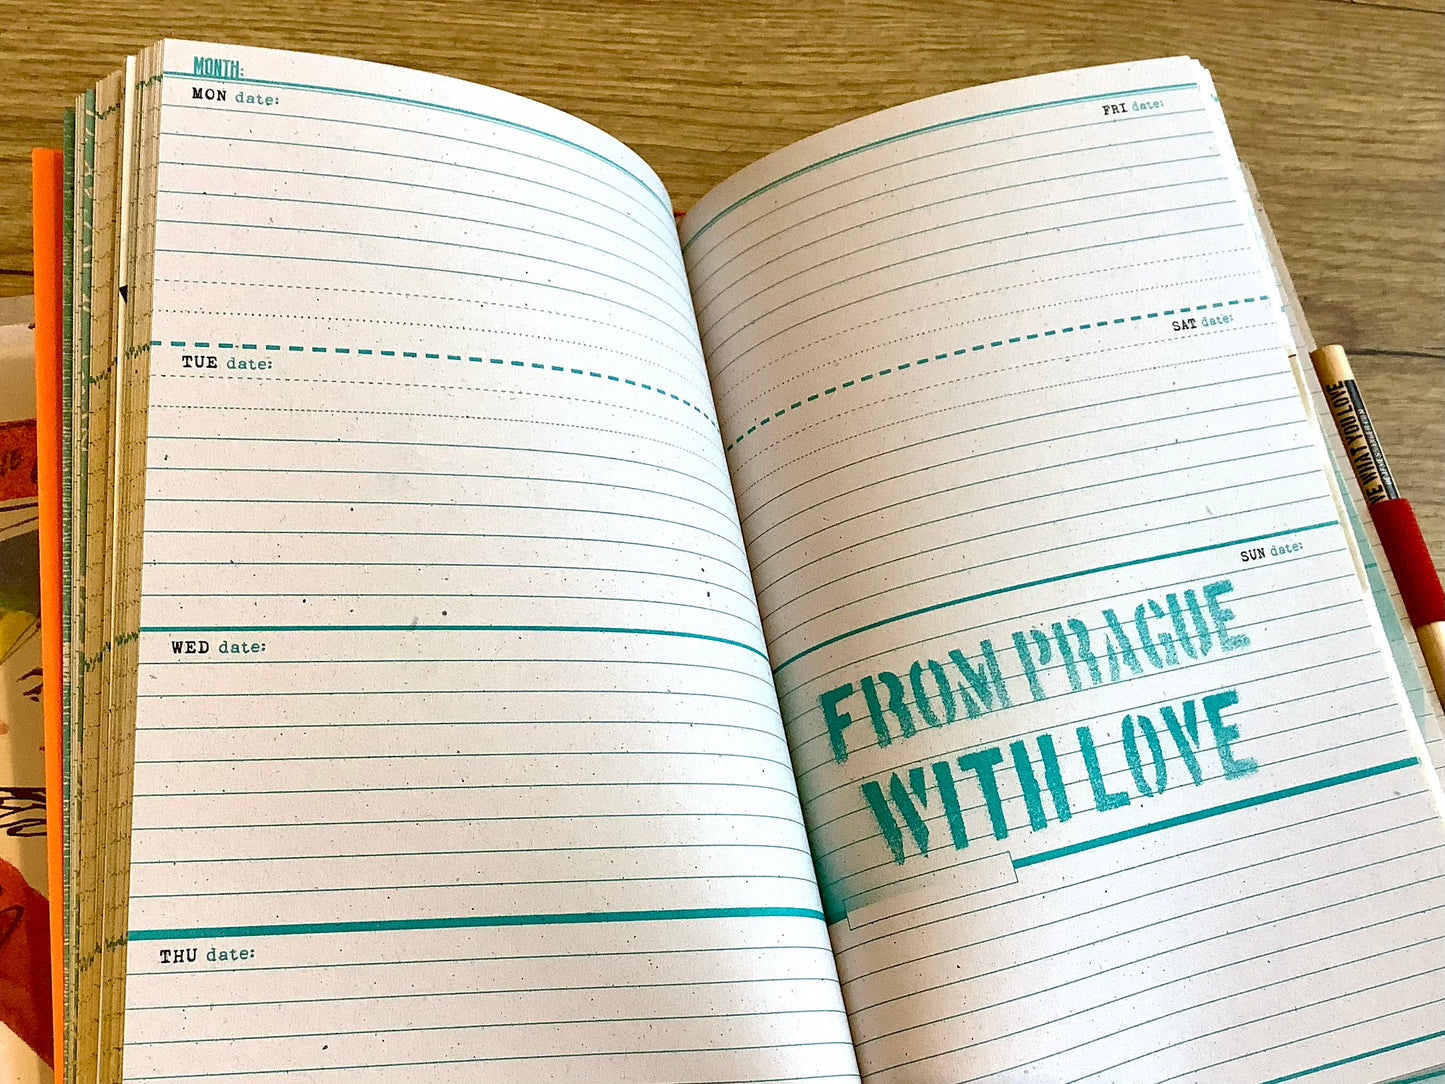 MONTH:
MON date:
TUE date:
WED date:
THU date:
FRI date:
SAT date:
SUN date:
FROM PRAGUE
WITH LOVE
WHAT YOU LOVE